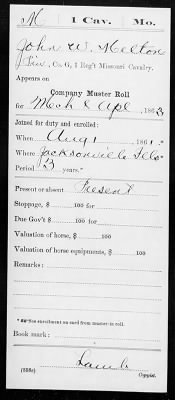 M | 1 Cav. | Mo.
John W. Melton
Priv., Co. G, 1 Reg't Missouri Cavalry.
Appears on
Company Muster Roll
for Mch & Apl, 1863
Joined for duty and enrolled:
When Aug 1, 1861.*
Where Jacksonville Ills*
Period 3 years.*
Present or absent Present
Stoppage, $ 100 for
Due Gov't $ 100 for
Valuation of horse, $ 100
Valuation of horse equipments, $ 100
Remarks:
*See enrollment on card from muster-in roll.
Book mark:
Lamb
(358c) Copyist.